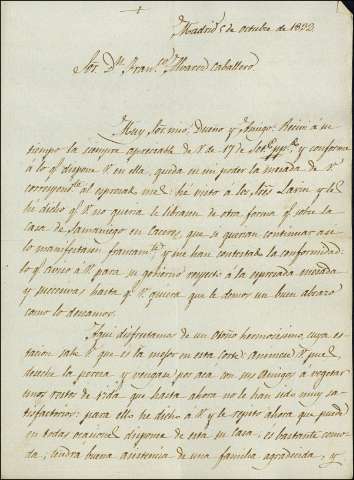 Madrid 5 de octubre de 1833.
Sor. Dn. Franco. Alvarez Caballero.
Muy Sor. mio, Dueño y Amigo: Recivi á su
tiempo la siempre apreciable de V. de 17 de Sete. pp. y conforme
á lo qe. dispone V. en ella, queda en mi poder la mesada de Vs.
correspondte. al espresado mes: he visto á los Sres. Lavin y les
he dicho qe. V. no queria le librasen de otra forma qe. sobre la
casa de Samaniego en Caceres, que si querian continuar asi
lo manifestasen francamte. y me han contestado la conformidad:
lo qe. aviso á V. para su gobierno respecto á la espresada mesada
y sucesivas hasta qe. V. quiera que le demos un buen abrazo
como lo deseamos.
Aqui disfrutamos de un Otoño hermosisimo, cuya es-
tacion sabe V. que es la mejor en esta corte: Anímese V. pues,
deseche la pereza y vengan por acá con sus Amigos á vegetar
unos restos de vida que hasta ahora no le han sido muy sa-
tisfactorios: para ello he dicho á V. y le repito ahora que puede
en todas ocasiones disponer de esta su casa: es bastante como-
da; tendrá buena asistencia de una familia agradecida, y